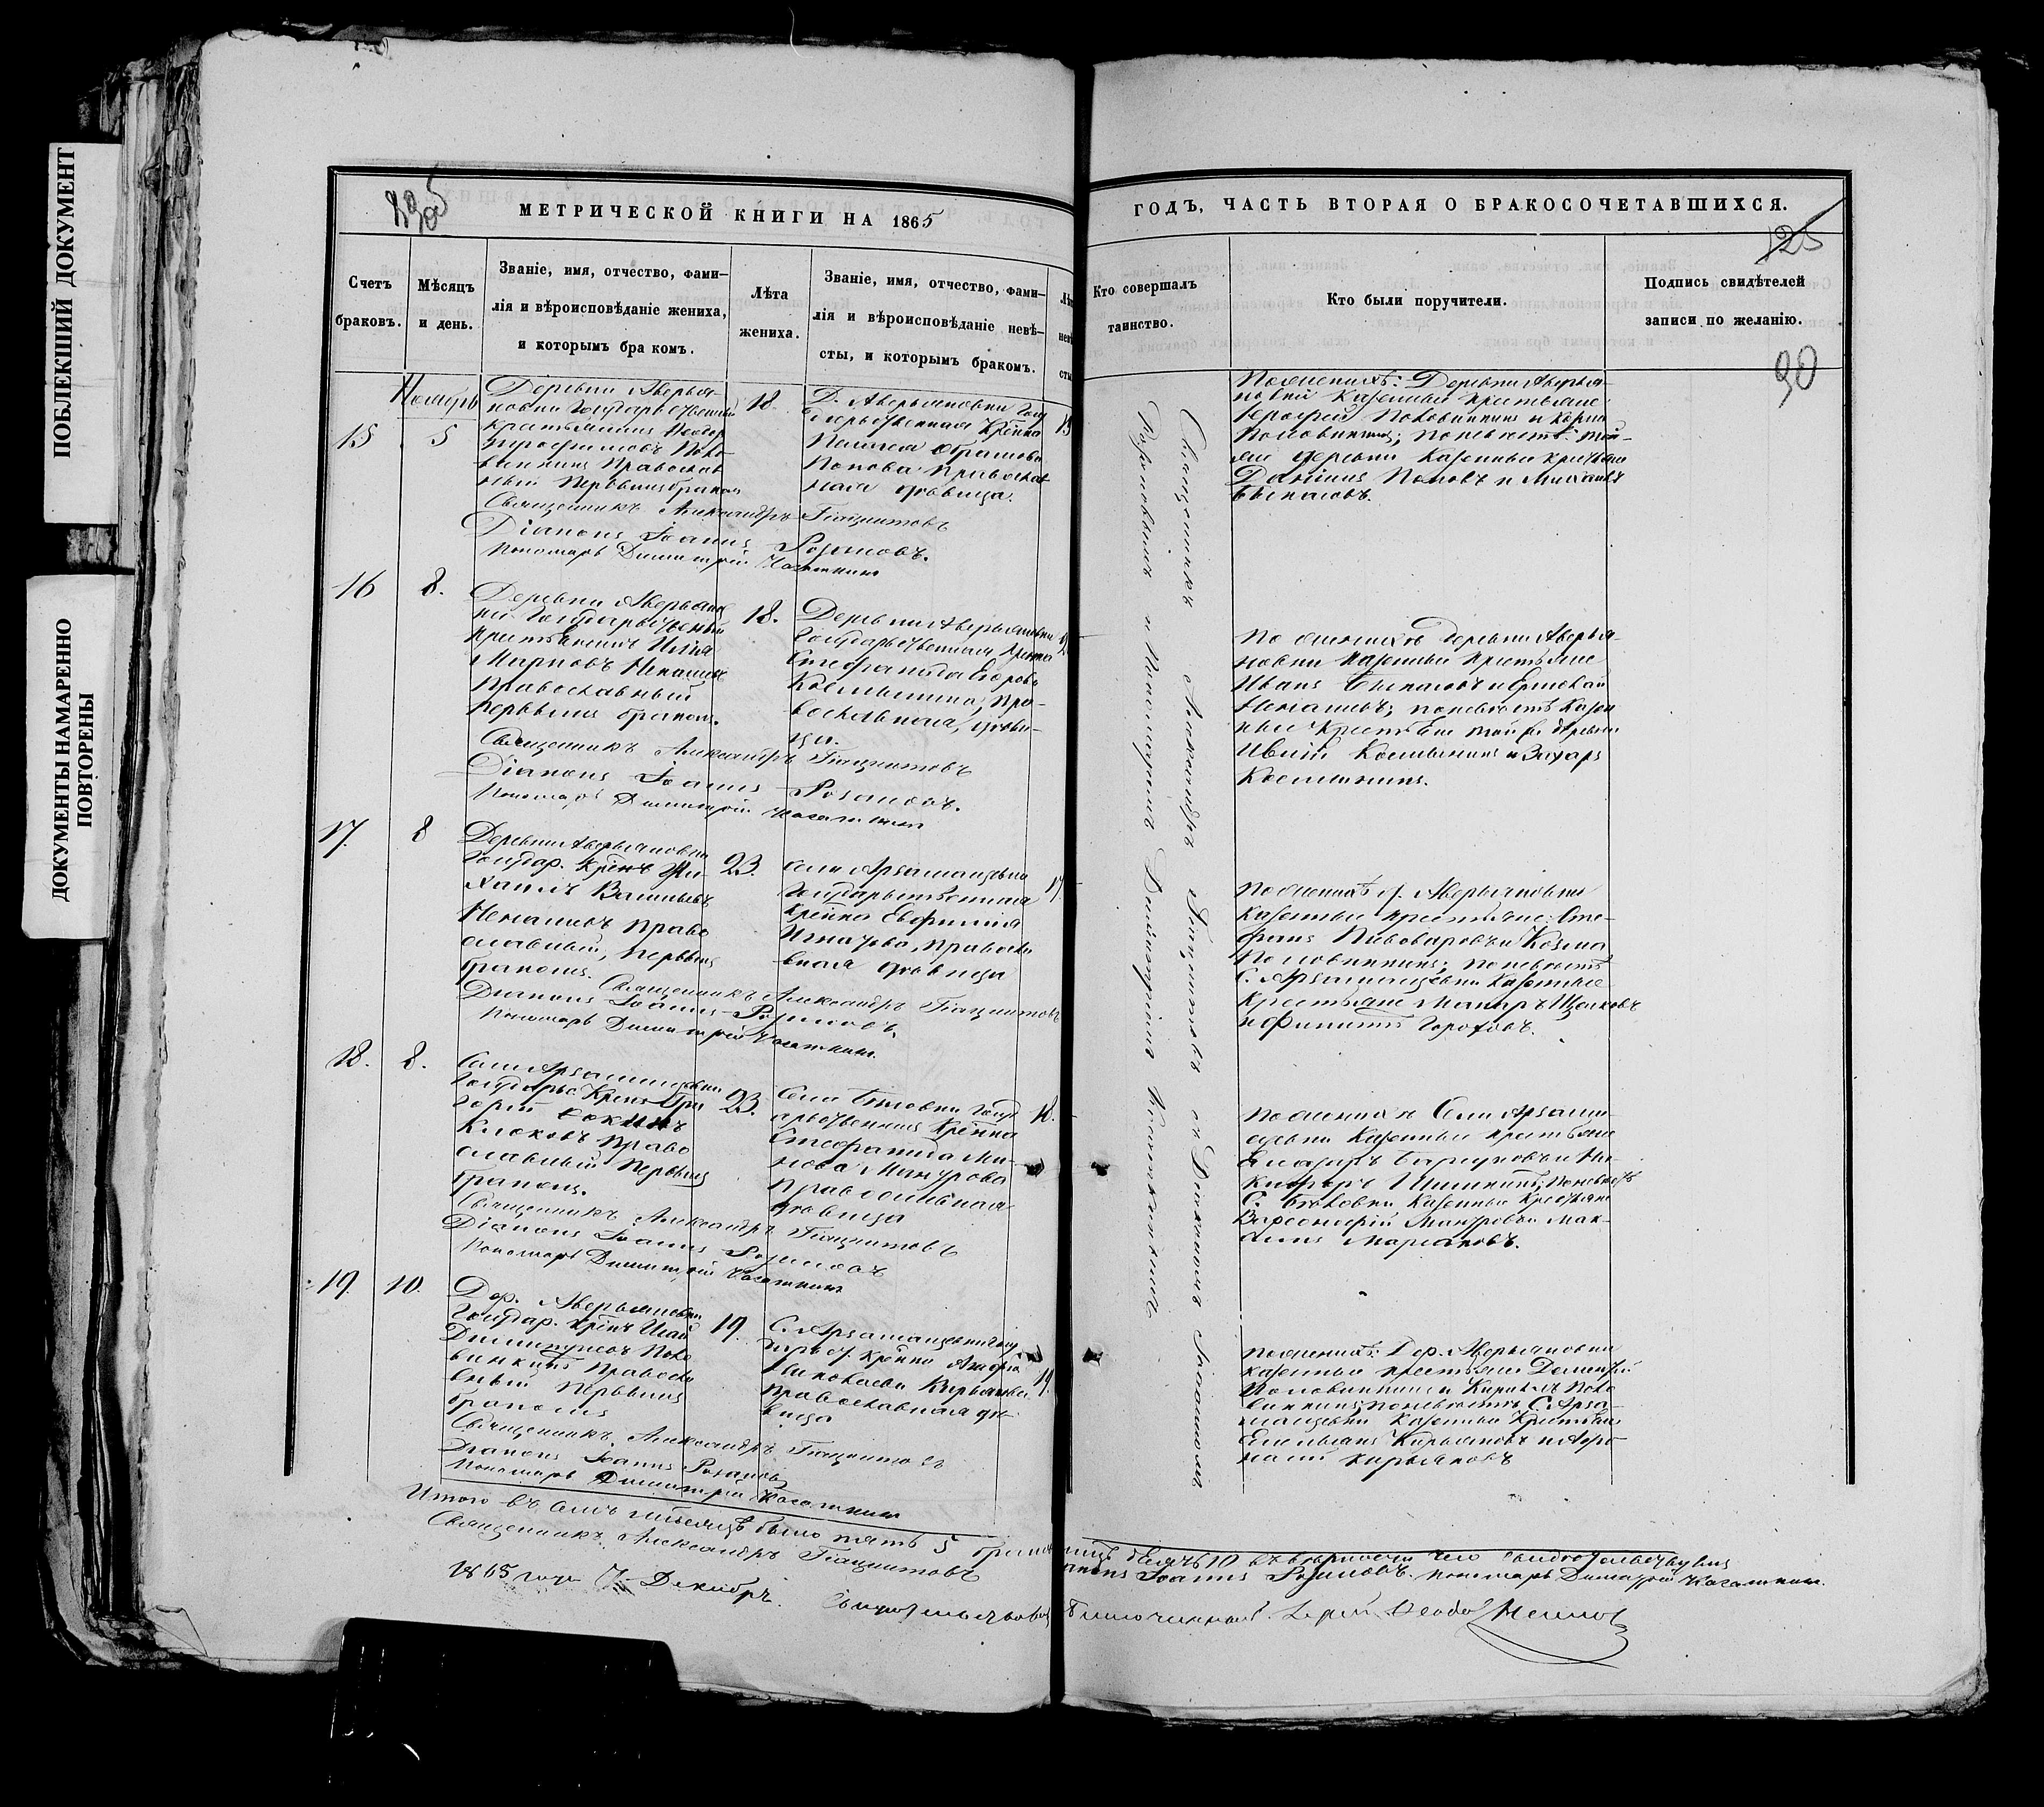 ПОБЛЕКШИЙ ДОКУМЕНТ
ДОКУМЕНТЫ НАМАРЕННО
ПОВТОРЕНЫ
МЕТРИЧЕСКОЙ КНИГИ НА 1865
ГОДЪ, ЧАСТЬ ВТОРАЯ О БРАКОСОЧЕТАВШИХСЯ.
125
90
Счетъ
браковъ.
Мѣсяцъ
и день.
Званіе, имя, отчество, фами-
лія и вѣроисповѣданіе жениха,
и которымъ бра комъ.
Лѣта
жениха.
Званіе, имя, отчество, фами-
лія и вѣроисповѣданіе невѣ-
сты, и которымъ бракомъ.
Кто совершалъ
таинство.
Кто были поручители.
Подпись свидѣтелей
записи по желанію.
Ноябрь
15
5
Деревни Аверья-
новки Государственный
крестьянинъ Ѳеодоръ
Поло-
винкинъ Православ
ный первымъ бракомъ
18
Д. Аверьяновки Госу
дарственная Крѣпка
Пелагея Абрамова
Попова Православ
ная дѣвица.
Священникъ Александръ Гіацинтовъ
Діаконъ Іоаннъ Розановъ.
Пономарь Димитрій Касаткинъ
По женихѣ: Деревни Аверья-
новки Казенные крестьяне
Ерофей Половинкинъ и Козма
Половинкинъ; по невѣстѣ: той-
же деревни Казенные крестьяне
Даніилъ Поповъ и Михаилъ
16
8.
Деревни Аверьянов
ки Государственный
крестьянинъ Илья
Марковъ Ненашевъ
Православный
первымъ бракомъ.
18.
Деревни Аверьяновки
Государственная Крѣпка
Стефанида Егорова
Космынина, Пра-
вославная, дѣви-
ца.
Священникъ Александръ Гіацинтовъ
Діаконъ Іоаннъ Розановъ.
Пономарь Димитрій Касаткинъ
По женихѣ деревни Аверья-
новки Казенные крестьяне
Иванъ и Ермолай
Ненашевъ; по невѣстѣ Казен
ные Крестьяне той же деревни
Космынинъ и Захаръ
Космынинъ.
17.
8
Деревни Аверьяновки
Государ. Крѣнъ Ми-
хаилъ Васильевъ
Ненашевъ Право
славный, первымъ
бракомъ.
23.
села Арзамасцевки
Государственная
Крѣпка Евфимія
Игнатова, Правосла
вная дѣвица
17
Священникъ Александръ Гіацинтовъ
Діаконъ Іоаннъ Розановъ
Пономарь Димитрій Касаткинъ.
По женихѣ д. Аверьяновки
Казенные крестьяне: Сте-
фанъ Пивоваровъ и Козма
Половинкинъ; по невѣстѣ
С. Арзамасцевки Казенные
Крестьяне Макаръ Щелковъ
и Филиппъ Гороховъ.
18.
8.
Села Арзамасцевки
Государс. Крѣнъ Гри
горій
Клоковъ Право
славный первымъ
бракомъ.
23.
Села Государ
арственная Крѣпка
Стефанида
Манурова
Православная
дѣвица
18.
Священникъ Александръ Гіацинтовъ
Діаконъ Іоаннъ Розановъ
Пономарь Димитрій Касаткинъ
По женихѣ Села Арзамас-
цевки Казенные крестьяне
Елеазаръ и Ни-
кифоръ Шишкинъ; по невѣстѣ
С. Казенные Крестьяне
Варсонофій Мануровъ и Мак-
симъ
19.
10.
Дер. Аверьяновки
Государ. Крѣнъ
Димитріевъ Поло
винкинъ Правосла
вный первымъ
бракомъ
19.
С. Арзамасцевки Госу
дарст. Крѣпка
Николаева Кирьянова
Православная дѣ-
вица
19.
Священникъ Александръ Гіацинтовъ
Діаконъ Іоаннъ Розановъ
Пономарь Димитрій Касаткинъ
По женихѣ: Дер. Аверьяновки
казенные крестьяне Димитрій
Половинкинъ и Кириллъ Поло
винкинъ; по невѣстѣ С. Арза-
масцевки Казенные Крестьяне
Емельянъ Кирьяновъ и Афа-
насій Кирьяновъ
Священникъ Александръ Гіацинтовъ съ Діакономъ Іоанномъ
Розановымъ и Пономаремъ Димитріемъ Касаткинымъ
Итого въ семъ мѣсяцѣ было пять 5 браковъ лицъ десять 10 въ вѣрности чего свидѣтельствуемъ
Священникъ Александръ Гіацинтовъ Діаконъ Іоаннъ Розановъ. Пономарь Димитрій Касаткинъ.
1865 года Декабрь. Свидѣтельствовалъ Благочинный Іерей